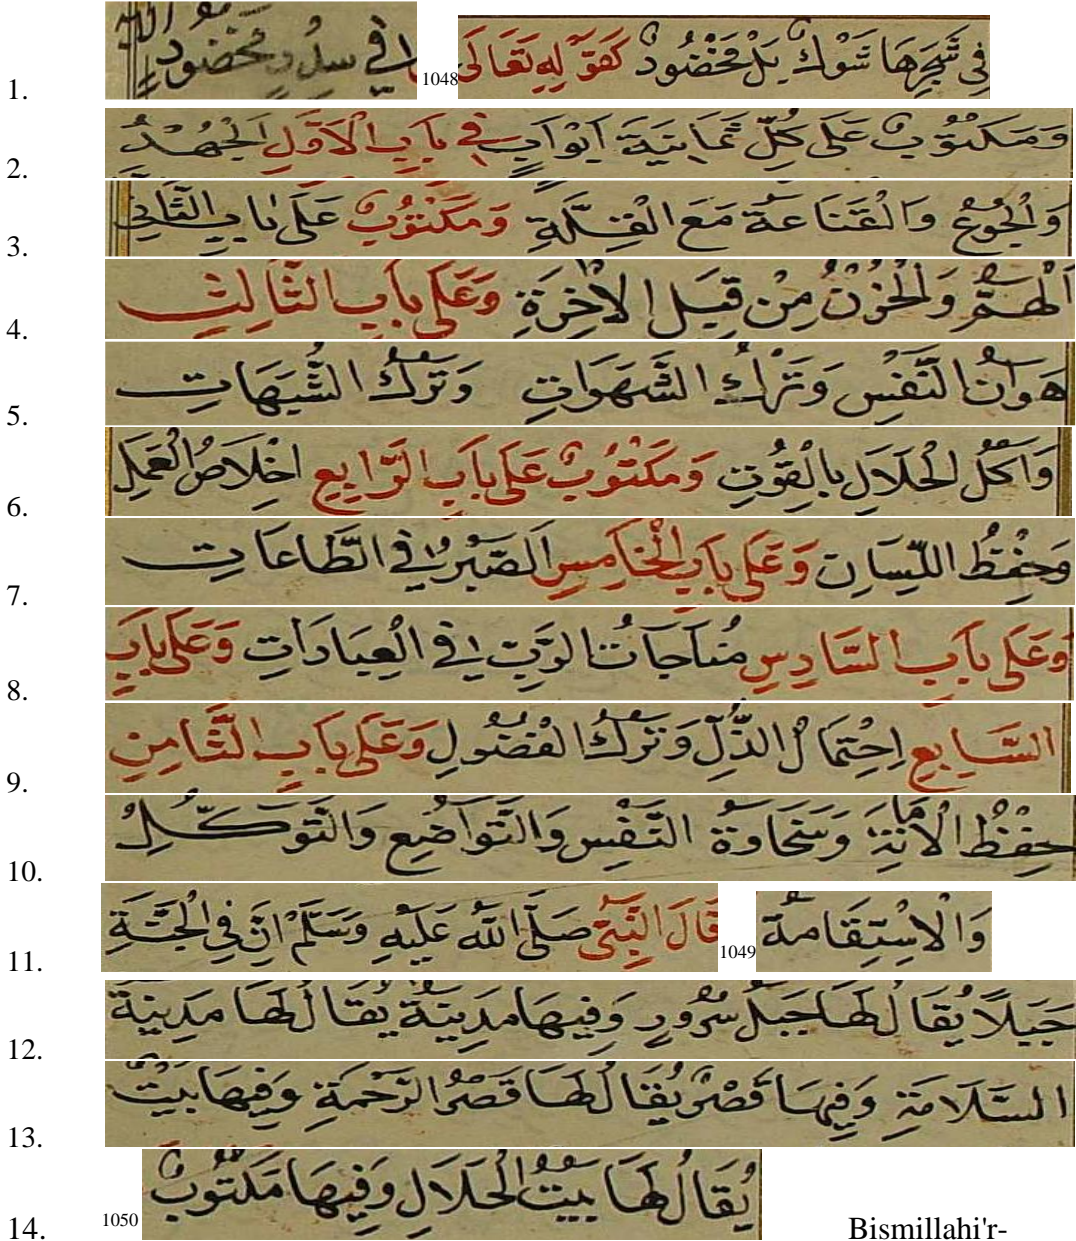 1. فِى شَجَرِهَا شَوْكٌ بَلْ مَخْضُودٌ كَقَوْلِهِ تَعَالَى 1048 فِي سِدْرٍ مَخْضُودٍ
2. وَمَكْتُوبٌ عَلَى كُلِّ ثَمَانِيَةَ اَبْوَابٍ فِي بَابِ الْاَوَّلِ اَلْجُهْدُ
3. وَالْجُوعُ وَالْقَنَاعَةُ مَعَ الْقِلَّةِ وَمَكْتُوبٌ عَلَى بَابِ الثَّانِي
4. اَلْهَمُّ وَالْحُزْنُ مِنْ قِبَلِ الْاٰخِرَةِ وَعَلَى بَابِ الثَّالِثِ
5. هَوَانُ النَّفْسِ وَتَرْكُ الشَّهَوَاتِ وَتَرْكُ الشُّبَهَاتِ
6. وَاَكْلُ الْحَلَالِ بِالْقُوتِ وَمَكْتُوبٌ عَلَى بَابِ الرَّابِعِ اخْلَاصُ الْعَمَلِ
7. وَحِفْظُ اللِّسَانِ وَعَلَى بَابِ الْخَامِسِ اَلصَّبْرُ فِي الطَّاعَاتِ
8. وَعَلَى بَابِ السَّادِسِ مُنَاجَاتُ الرَّبِّ فِي الْعِبَادَاتِ وَعَلَى بَابِ
9. السَّابِعِ اِحْتِمَالُ الذُّلِّ وَتَرْكُ الْفُضُولِ وَعَلَى بَابِ الثَّامِنِ
10. حِفْظُ الْاَمَانَةِ وَسَخَاوَةُ النَّفْسِ وَالتَّوَاضُعِ وَالتَّوَكُّلِ
11. وَالْاِسْتِقَامَةُ 1049 قَالَ النَّبِىُّ صَلَّى اللّٰهُ عَلَيْهِ وَسَلَّمْ اِنَّ فِي الْجَنَّةِ
12. جَبَلًا يُقَالُ لَهَا جَبَلُ سُرُورٍ وَفِيهَا مَدِينَةٌ يُقَالُ لَهَا مَدِينَةُ
13. السَّلَامَةِ وَفِيهَا قَصْرٌ يُقَالُ لَهَا قَصْرُ الرَّحْمَةِ وَفِيهَا بَيْتٌ
14. يُقَالُ لَهَا بَيْتُ الْحَلَالِ وَفِيهَا مَكْتُوبٌ 1050 Bismillahi'r-